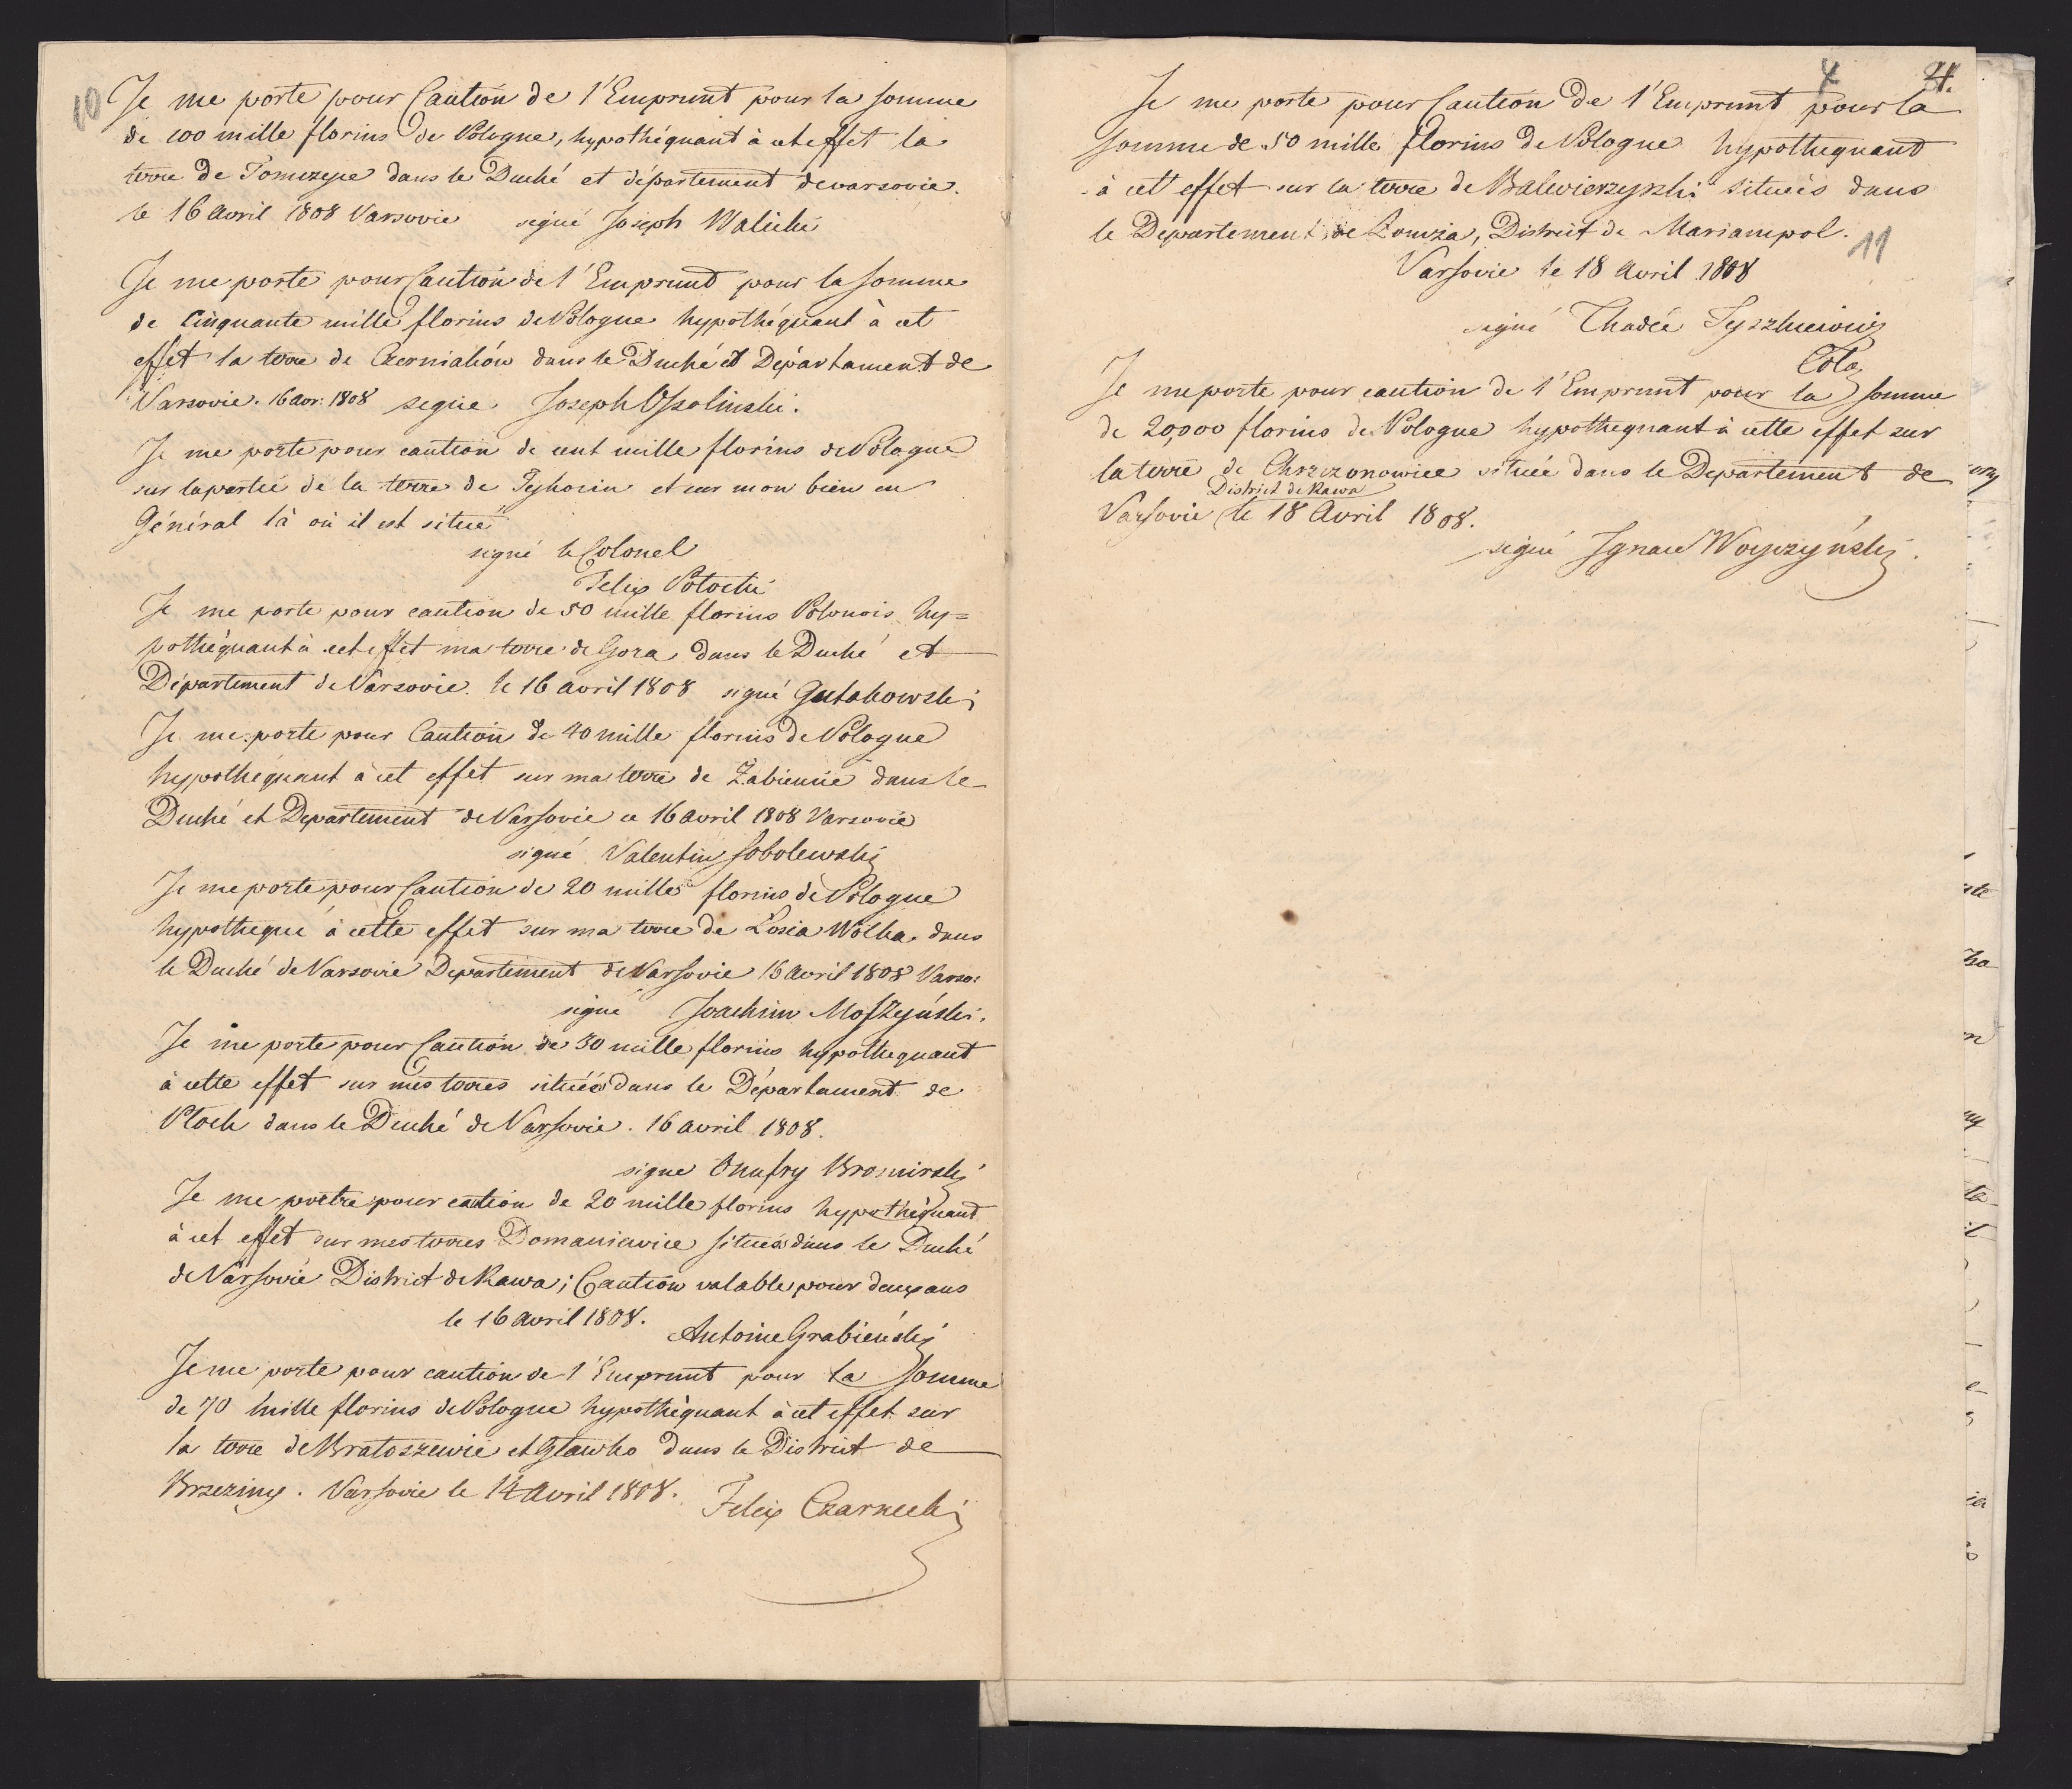 10
Je me porte pour Caution de l'Emprunt pour la somme
de 100 mille florins de Pologne, hypothéquant à cet effet la
terre de dans le Duché et département de varsovie.
le 16 avril 1808 Varsovie signé Joseph Walicki
Je me porte pour Caution de l'Emprunt pour la somme
de Cinquante mille florins de Pologne hypothéquant à cet
effet la terre de Czerniaków dans le Duché et Départament de
Varsovie. 16 avr: 1808 signé Joseph Ossolinski.
Je me porte pour caution de cent mille florins de Pologne
sur la partie de la terre de Tykocin et sur mon bien en
Général là où il est situé
signé le Colonel
Felix Potocki
Je me porte pour caution de 50 mille florins Polonois hy=
pothéquant à cet effet ma terre de Gora dans le Duché et
Département de Varsovie. le 16 avril 1808 signé Gutakowski
Je me porte pour Caution de 40 mille florins de Pologne
hypothéquant à cet effet sur ma terre de Zabieniec dans le
Duché et Departement de Varsovie ce 16 avril 1808 Varsovie
signé Valentin Sobolewski
Je me porte pour Caution de 20 mille florins de Pologne
hypothequé à cette effet sur ma terre de Łosia Wólka dans
le Duché de Varsovie Departement de Varsovie 16 avril 1808 Varso:
signé Joachim Moszyński.
Je me porte pour Caution de 30 mille florins hypothequant
à cette effet sur mes terres situées dans le Départament de
Plock dans le Duché de Varsovie. 16 avril 1808.
signe Onufry Bromirski
Je me portre pour caution de 20 mille florins hypothéquant
à cet effet sur mes terres Domaniewice situés dans le Duché
de Varsovie District de Rawa; Caution valable pour deux ans
le 16 avril 1808.
Antoine Grabieński
Je me porte pour caution de l'Emprunt pour la somme
de 70 mille florins de Pologne hypothéquant à cet effet sur
la terre de Bratoszewic et Głowno dans le District de
Brzeziny. Varsovie le 14 Avril 1808. Felix Czarnecki
4 4.
Je me porte pour Caution de l'Emprunt pour la
somme de 50 mille florins de Pologne hypothequant
à cet effet sur la terre de Balwierzyszki situeés dans
le Departement de Łomża, District de Mariampol.
11
Varsovie le 18 Avril 1808
signé Thadée Tyszkiewicz
Col.
Je me porte pour caution de l'Emprunt pour la somme
de 20,000 florins de Pologne hypothequant à cette effet sur
la terre de Chrzczonowice située dans le Departement de
District de Rawa
Varsovie le 18 Avril 1808.
signé Ignace Woyczyński.